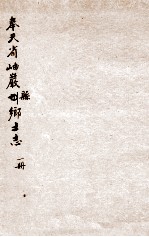 奉天省岫巖州縣鄉土志
一冊